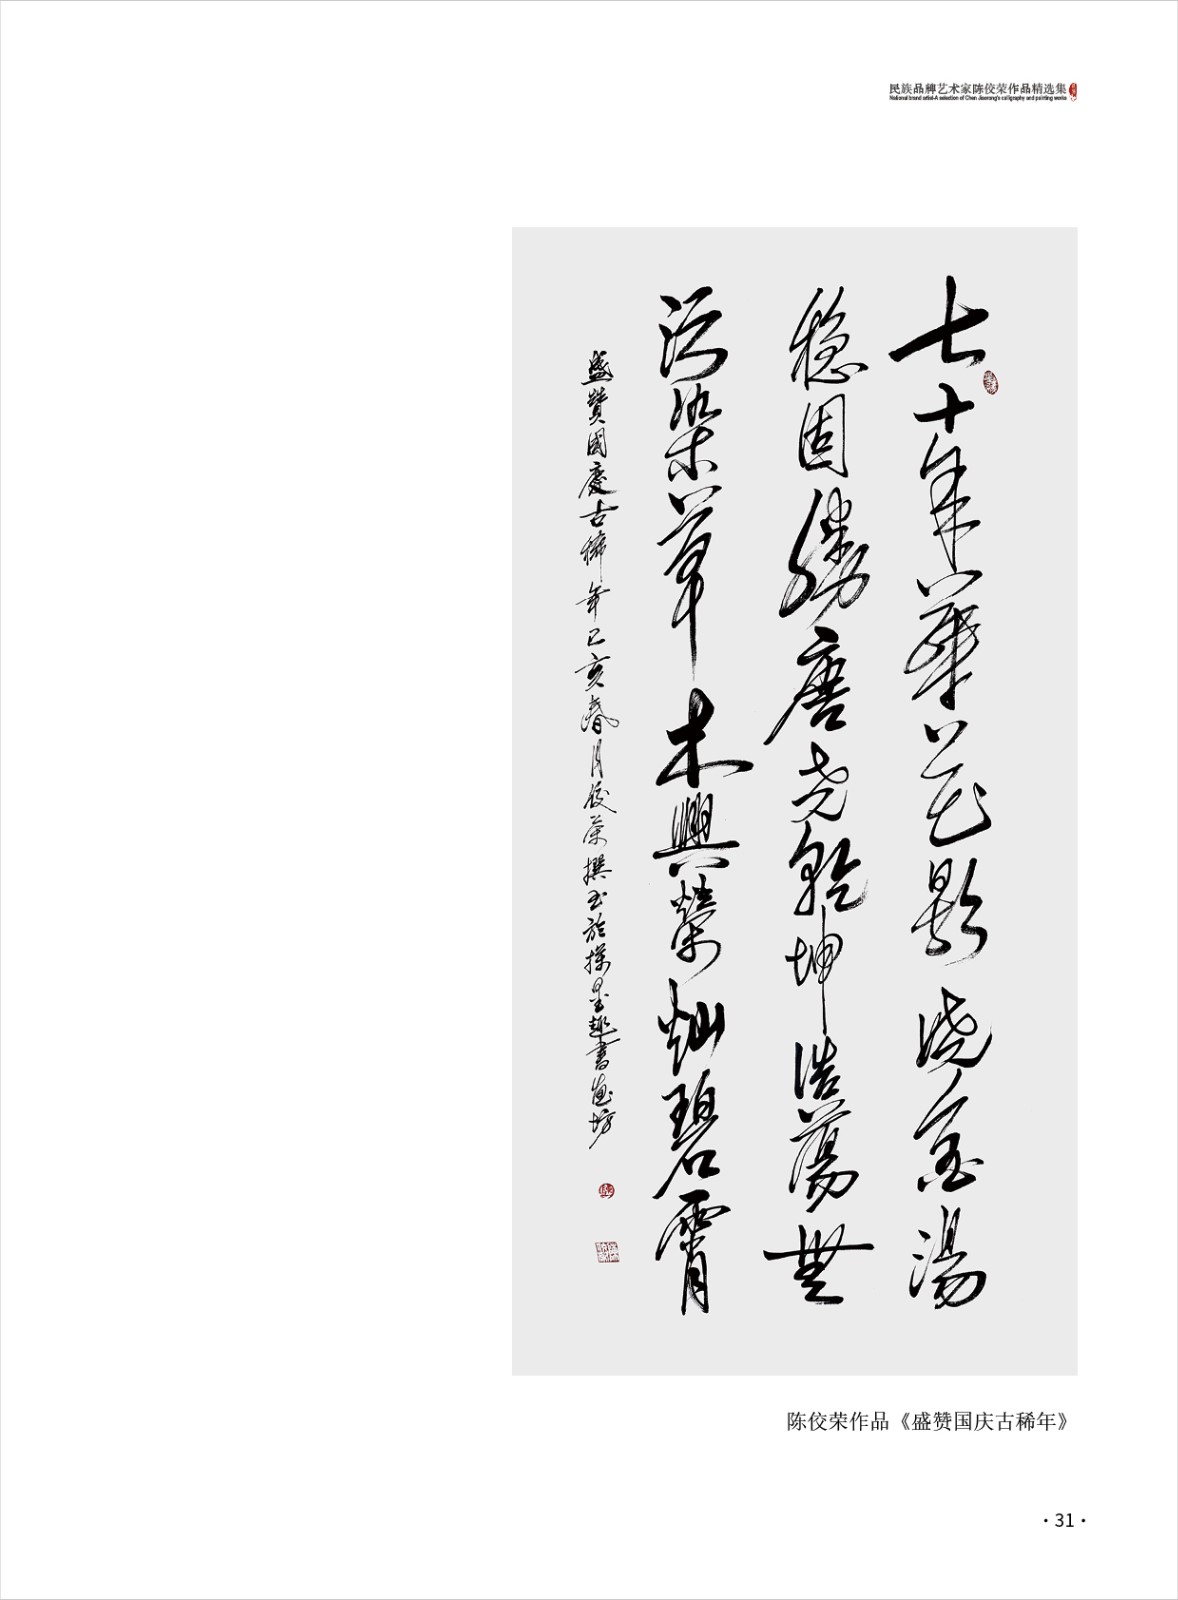 民族品牌艺术家陈佼荣作品精选集
National brand artist-A selection of Chen Jiaorong's calligraphy and painting works
七十年華花影嬈金湯
穩固勝唐堯乾坤浩蕩無
污染草木興榮灿碧霄
盛贊國慶古稀年己亥春月佼荣撰书於撲墨趣書画坊
陈佼荣作品《盛赞国庆古稀年》
·31·